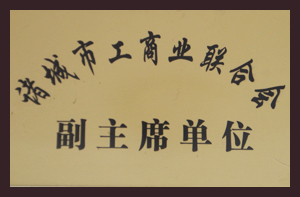 诸城市工商业联合会
副主席单位